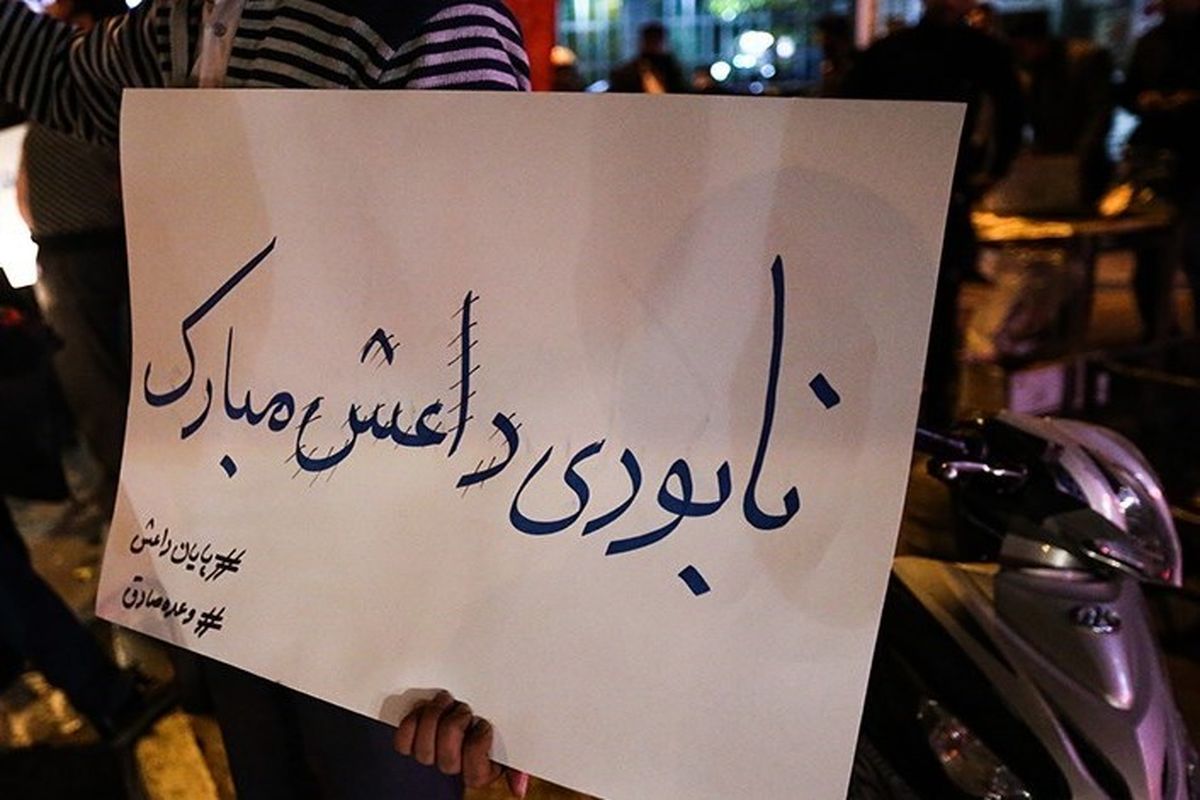 نابودی داعش مبارک
#پایان داعش
#وعده صادق